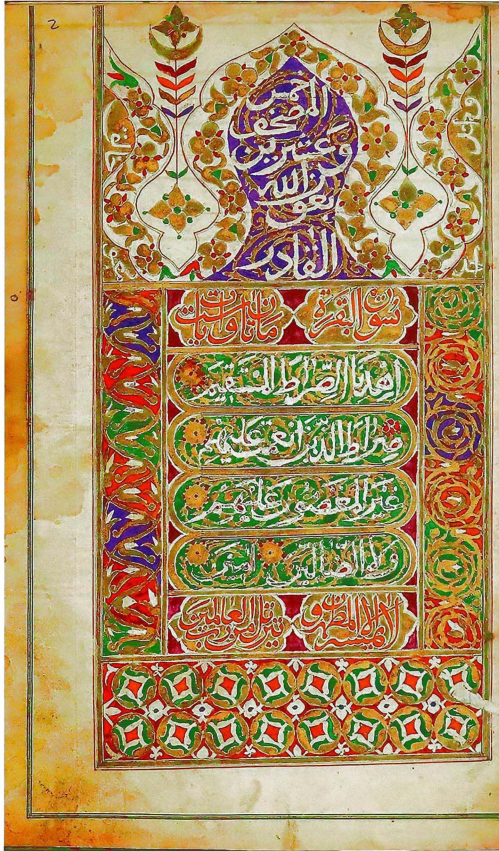 2
المصحف
وعشرين
بعون الله
القادر
سورة البقرة
اهدنا الصراط المستقيم
صراط الذين انعمت عليهم
غير المغضوب عليهم
ولا الضالين امين
لا يمسه الا المطهرون تنزيل من رب العالمين